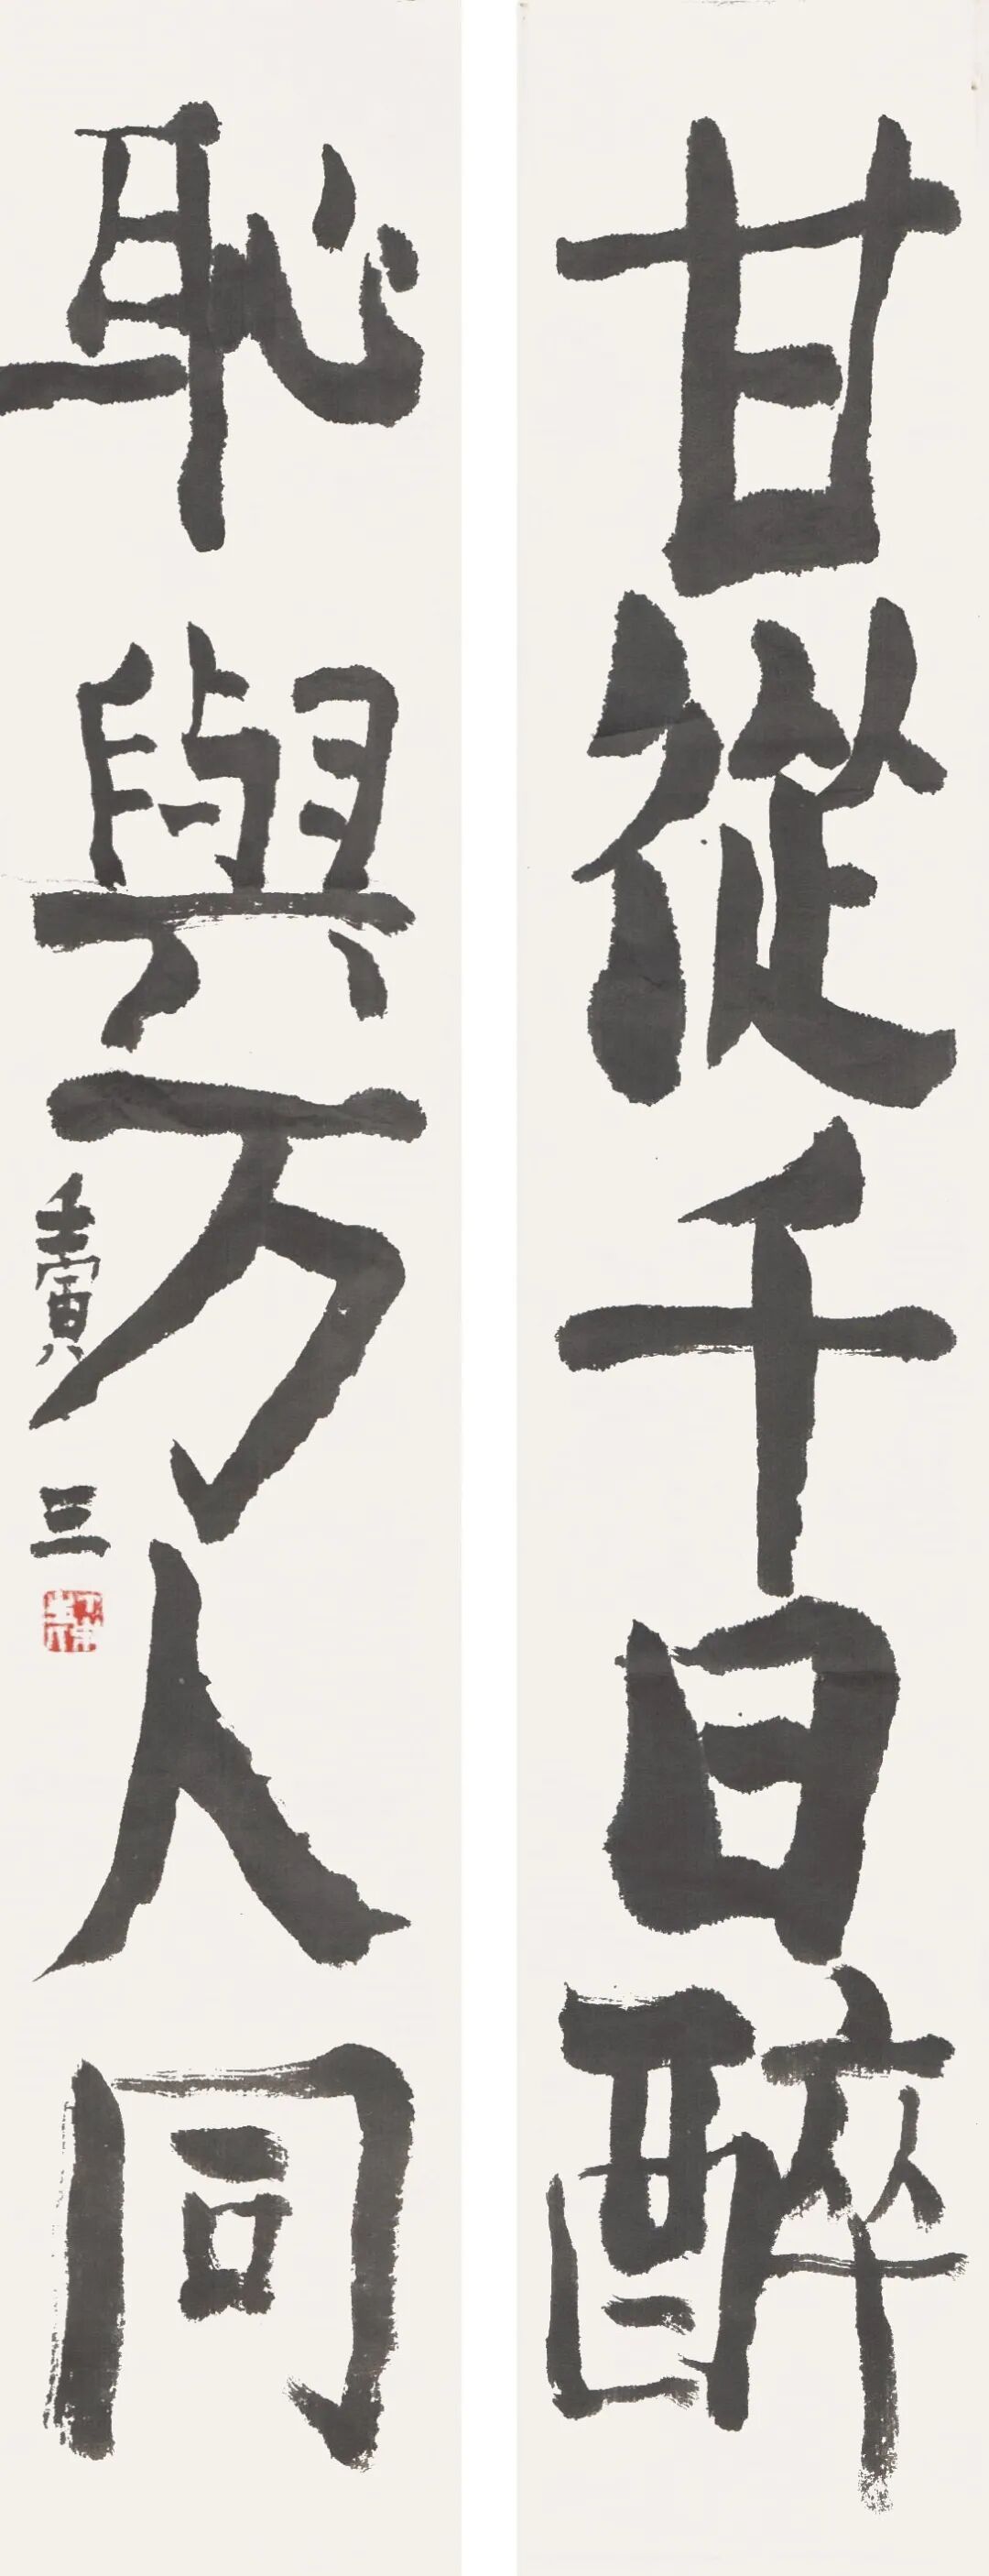 甘從千日醉
恥與万人同
壬寅 三